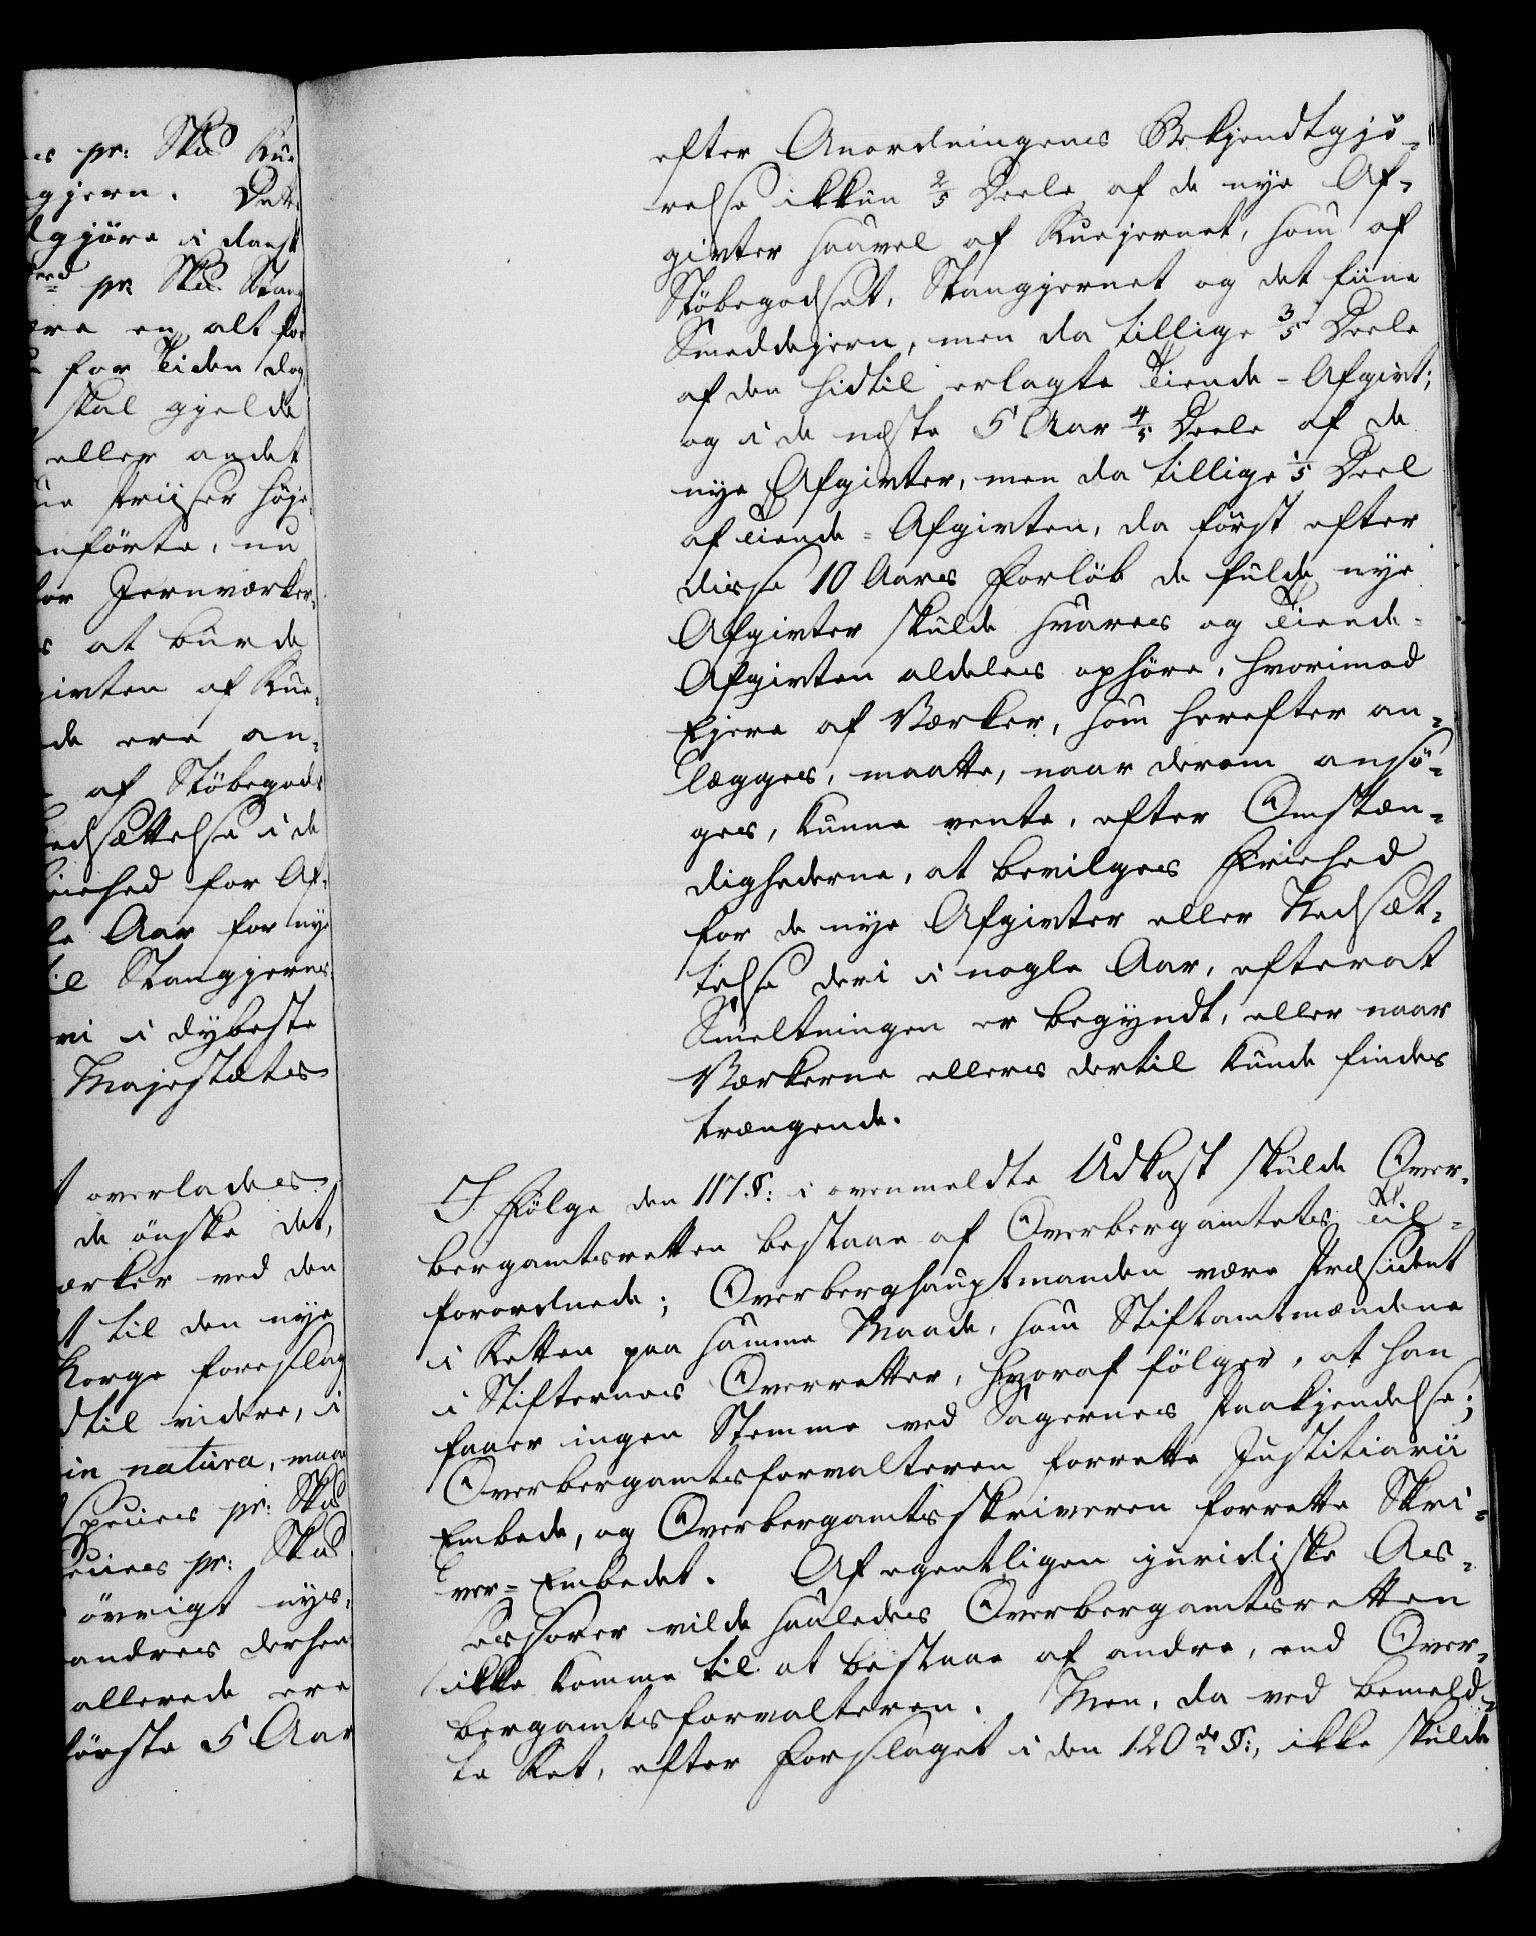 es pr: Sk℔ Rue
gjern. Det
lgjöre i dansk
pr Sk℔ Stang
ere en alt for
for Tiden dog
skal gjelde
eller andet
ne Priiser höje
nförte, nu
for Jernværker
s at burde
givten af Rue
de ere an-
af Stöbegods
edsættelse i de
riehed for Af-
le Aar for nye
til Stangjernes
vi i dybeste
Majestætes
t overlades
de önske det,
ærker ved den
t til den nye
Norge foreslag
dtil videre, i
in natura, maa
Species pr: Sk℔
ecies pr: Sk℔
övrigt nys-
andres derhen
allerede ere
förste 5 Aar
efter Anordningens Bekjendtgjö-
relse ikkun 2/5 Deele af de nye Af-
givter saavel af Ruejernet, som af
Stöbegodset, Stangjernet og det fiine
Smeddejern, men da tillige 3/5 Deele
af den hidtil erlagte Tiende-Afgivt;
og i de næste 5 Aar 4/5 Deele af de
nye Afgivter, men da tillige 1/5 Deel
af Tiende-Afgivten, da först efter
disse 10 Aars Forlöb de fulde nye
Afgivter skulde svares og Tiende-
Afgivten aldeles ophöre, hvorimod
Ejere af Værker, som herefter an-
lægges, maatte, naar derom ansö-
ges, kunne vente, efter Omstæn-
dighederne, at bevilges Friehed
for de nye Afgivter eller Nedsæt-
telse deri i nogle Aar, efterat
Smeltningen er begyndt, eller naar
Værkerne ellers dertil kunde findes
trængende.
I Fölge den 117 §: i ovenmeldte Udkast skulde Over-
bergamtsretten bestaae af Overbergamtets Til-
forordnede; Overberghauptmanden være Præsident
i Retten paa samme Maade, som Stiftamtmændene
i Stifternes Overretter, hvoraf fölger, at han
faaer ingen Stemme ved Sagernes Paakjendelse;
Overbergamtsforvalteren forrette Justitiarii
Embede, og Overbergamtsskriveren forrette Skri-
ver-Embedet. Af egentligen juridiske As-
sessorer vilde saaledes Overbergamtsretten
ikke komme til at bestaae af andre, end Over-
bergamtsforvalteren. Men, da ved bemeld-
te Ret, efter Forslaget i den 120de §:, ikke skulde